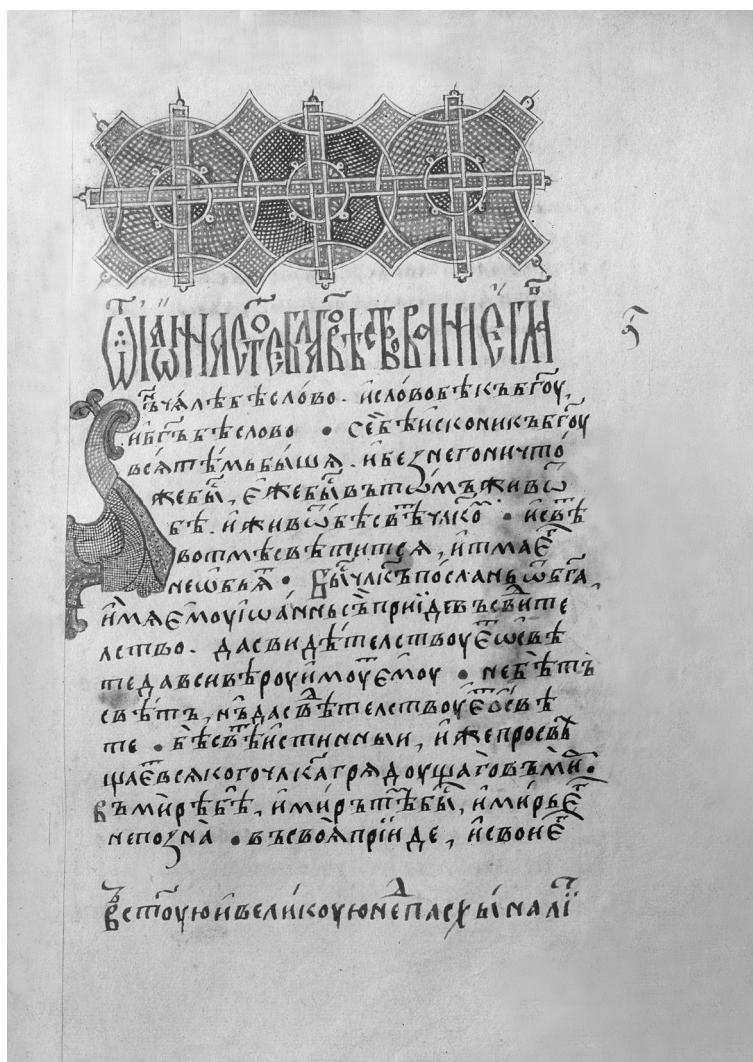 Ѿ іѡаннаст҃оебл҃говѣствованиегл҃а
҃г
нъчалѣбѣслово. ислововѣкъбг҃оу,
ибг҃ъбѣслово • себѣисконикъбг҃оу
всятѣмьбышя. ибезнегоничто
жебы, єжебывътѡмъживѡ
бѣ. иживѡбѣсвѣ҃члкѡ • исвѣ
вотмѣсвѣтитсѧ, итмаѥ
неѡбьꙗ • Бычл҃къпосланьѿбг҃а,
имяемоуіѡанньсъпріидевъсвⷣите
лство. дасвидѣтелствоуеѡсвѣ
тедавсивѣроуимоуемоу • небѣтъ
свѣтъ, нъдасвⷣѣтелствоуеѡсвѣ
те • бѣсвѣистинныи, ижепросвѣ
щаевсякогочл҃кагрядоущаговъми.
въмирѣбѣ, имирътѣбы, имирье
непозна • въсвояпріиде, исвоие
Въст҃оуюивеликоуюнеⷣпасхыналі